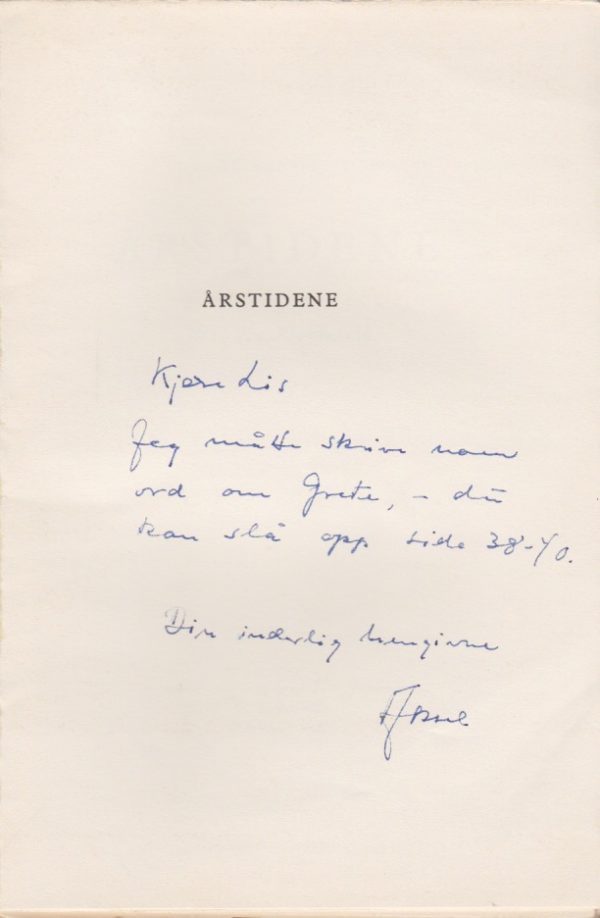 ÅRSTIDENE
Kjære Lis
Jeg måtte skrive noen
ord om Grete, – du
kan slå opp side 38-40.
Din inderlig hengivne